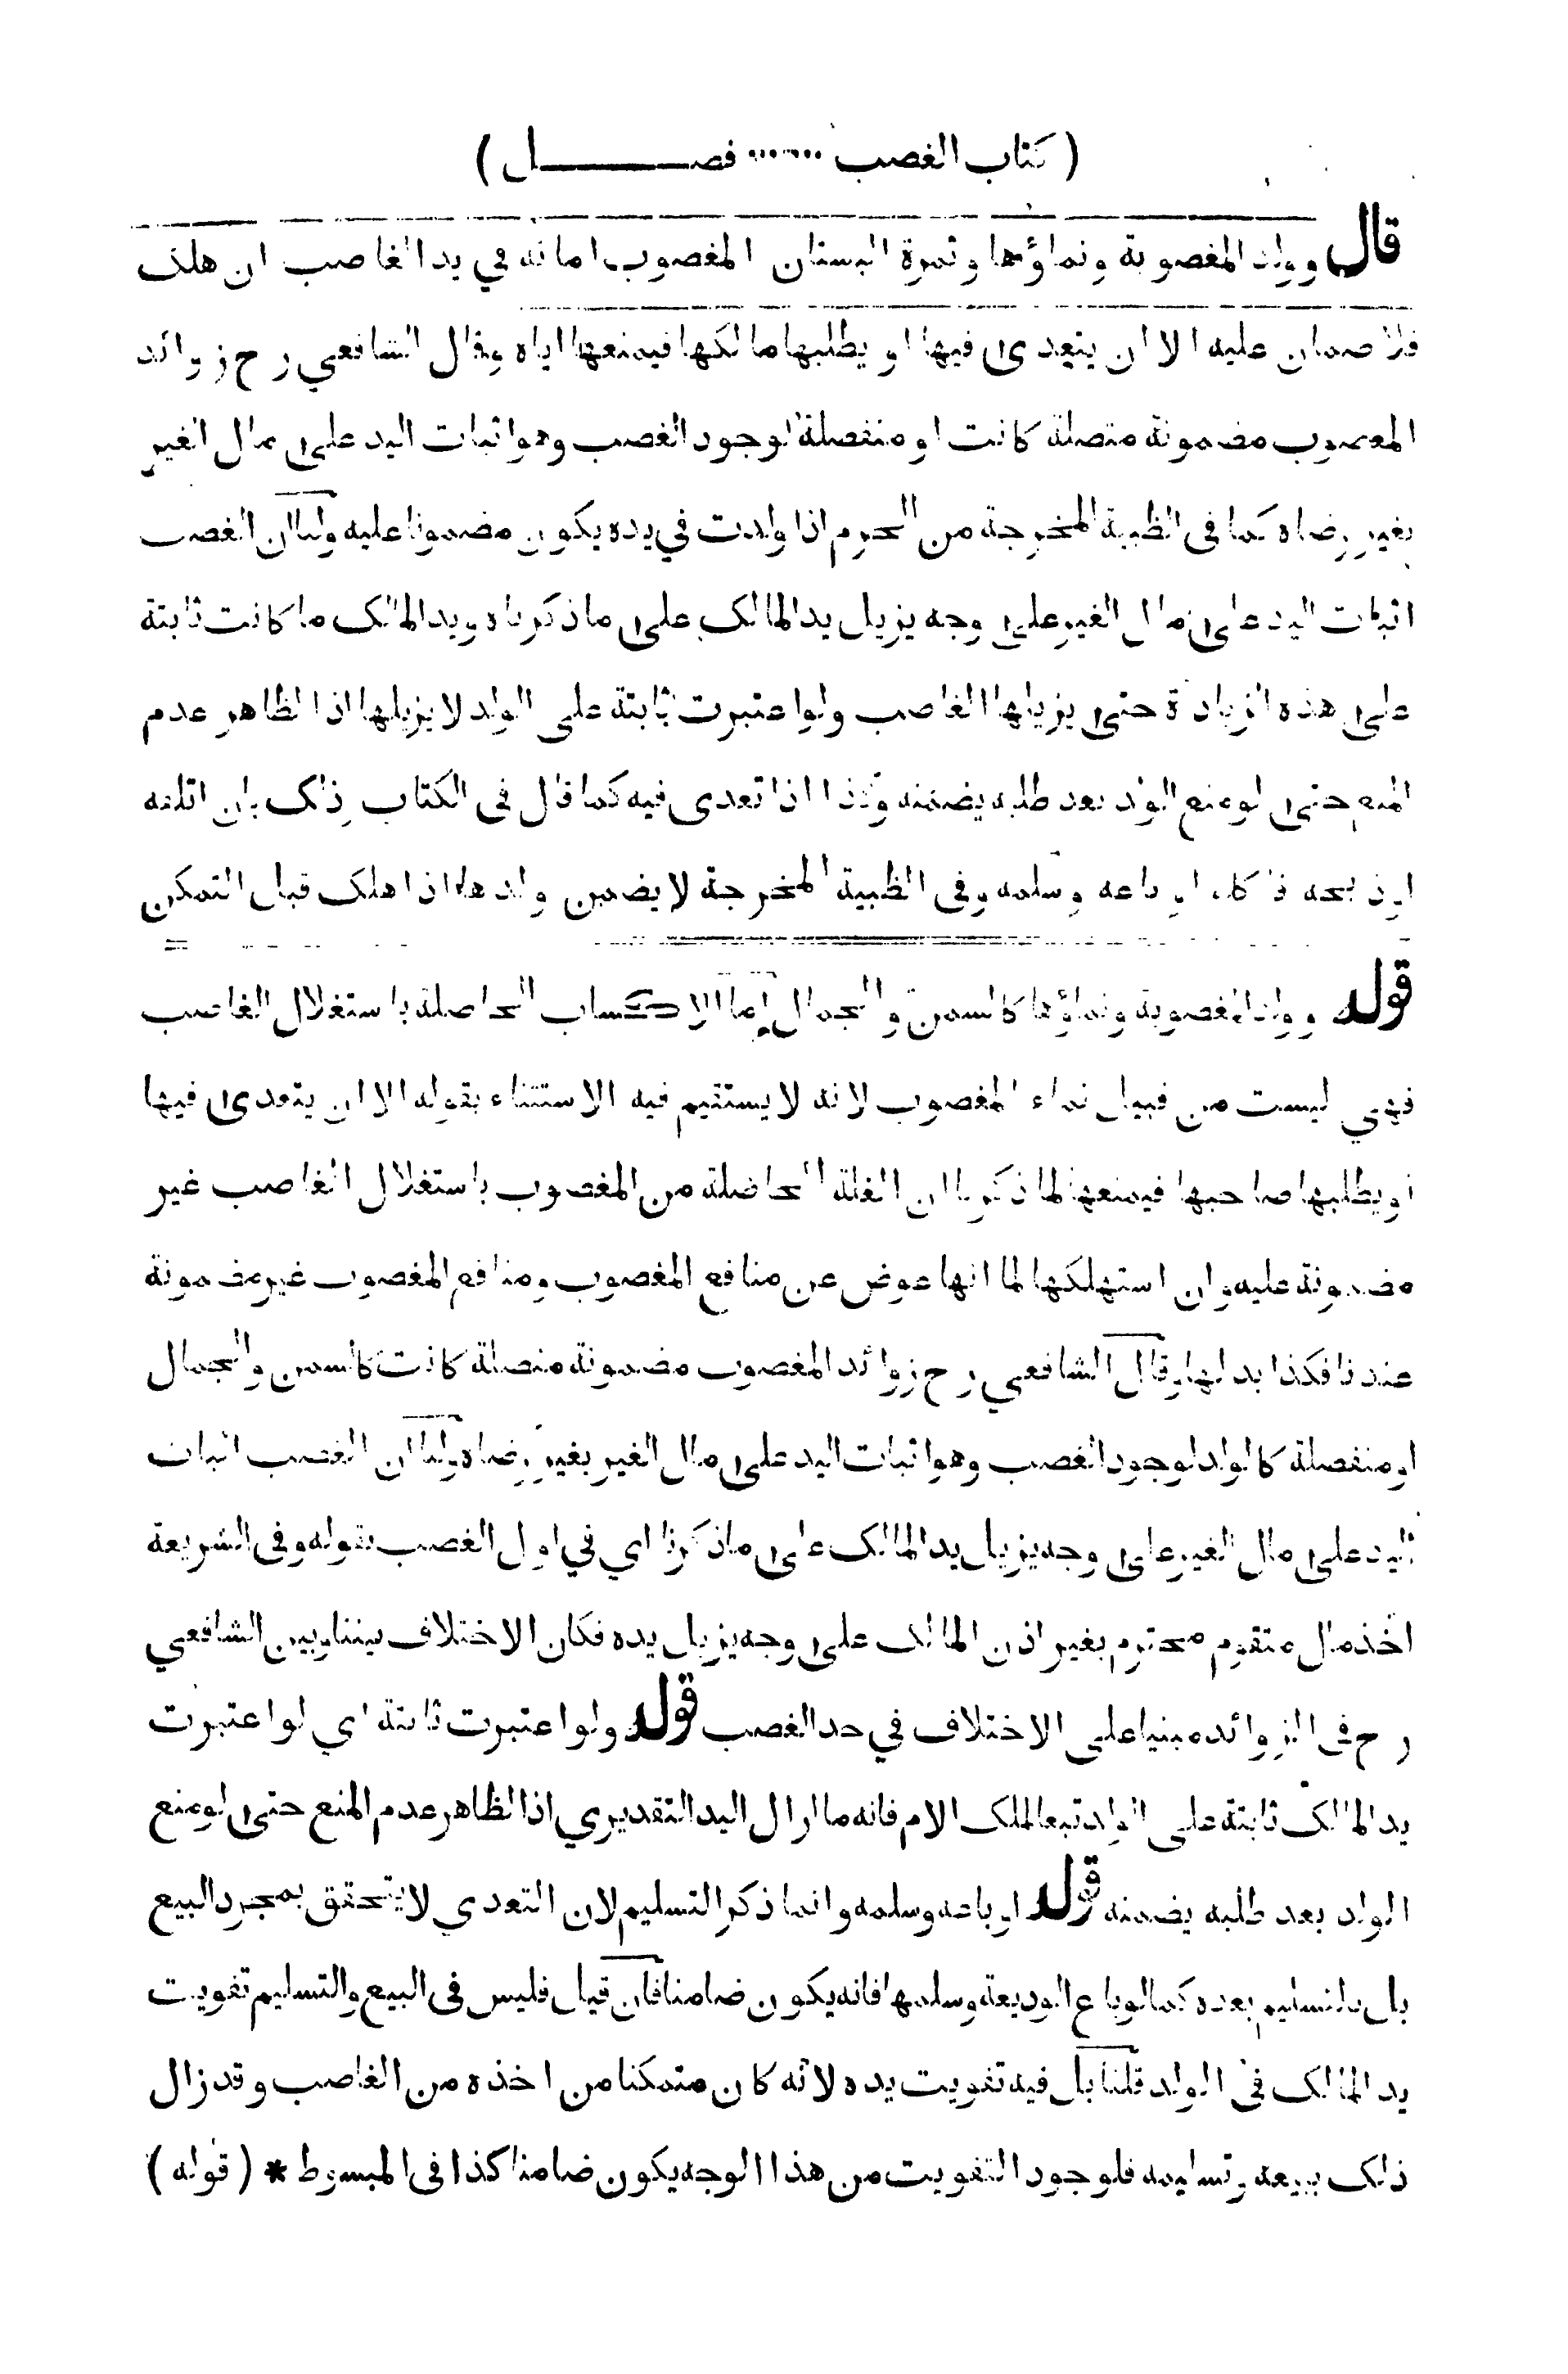 ( كتاب الغصب ...... فصـــــل )
قال وولد المغصوبة ونماؤها وثمرة البستان المغصوب امانة في يد الغاصب ان هلك
فلا ضمان عليه الا ان يتعدى فيها او يطلبها مالكها فيمنعها اياه وقال الشافعي رح زوائد
المغصوب مضمونة متصلة كانت او منفصلة لوجود الغصب وهو اثبات اليد على مال الغير
بغير رضاه كما فى الظبية المخرجة من الحرم اذا ولدت في يده يكون مضمونا عليه ولنا ان الغصب
اثبات اليد على مال الغير على وجه يزيل يد المالك على ما ذكرناه ويد المالك ما كانت ثابتة
على هذه الزيادة حتى يزيلها الغاصب ولو اعتبرت ثابتة على الولد لا يزيلها اذ الظاهر عدم
المنع حتى لو منع الولد بعد طلبه يضمنه وكذا اذا تعدى فيه كما قال فى الكتاب وذلك بان اتلفه
او ذبحه فاكله او باعه وسلمه وفى الظبية المخرجة لا يضمن ولدها اذا هلك قبل التمكن
قوله وولد المغصوبة ونماؤها كالسمن والجمال اما الاكتساب الحاصلة باستغلال الغاصب
فهي ليست من قبيل نماء المغصوب لانه لا يستقيم فيه الاستثناء بقوله الا ان يتعدى فيها
او يطلبها صاحبها فيمنعها لما ذكرنا ان الغلة الحاصلة من المغصوب باستغلال الغاصب غير
مضمونة عليه وان استهلكها لما انها عوض عن منافع المغصوب ومنافع المغصوب غير مضمونة
عندنا فكذا بدلها وقال الشافعي رح زوائد المغصوب مضمونة متصلة كانت كالسمن والجمال
او منفصلة كالولد لوجود الغصب وهو اثبات اليد على مال الغير بغير رضاه ولنا ان الغصب اثبات
اليد على مال الغير على وجه يزيل يد المالك على ما ذكرنا اي في اول الغصب بقوله وفى الشريعة
اخذ مال متقوم محترم بغير اذن المالك على وجه يزيل يده فكان الاختلاف بيننا وبين الشافعي
رح فى الزوائد مبنيا على الاختلاف في حد الغصب قوله ولو اعتبرت ثابتة اي لو اعتبرت
يد المالك ثابتة على الولد تبعا لملك الام فانه ما ازال اليد التقديري اذ الظاهر عدم المنع حتى لو منع
الولد بعد طلبه يضمنه قوله او باعه وسلمه وانما ذكر التسليم لان التعدي لا يتحقق بمجرد البيع
بل بالتسليم بعده كما لو باع الوديعة وسلمها فانه يكون ضامنا فان قيل فليس فى البيع والتسليم تفويت
يد المالك فى الولد قلنا بل فيه تفويت يده لانه كان متمكنا من اخذه من الغاصب وقد زال
ذلك ببيعه وتسليمه فلوجود التفويت من هذا الوجه يكون ضامنا كذا فى المبسوط * ( قوله )